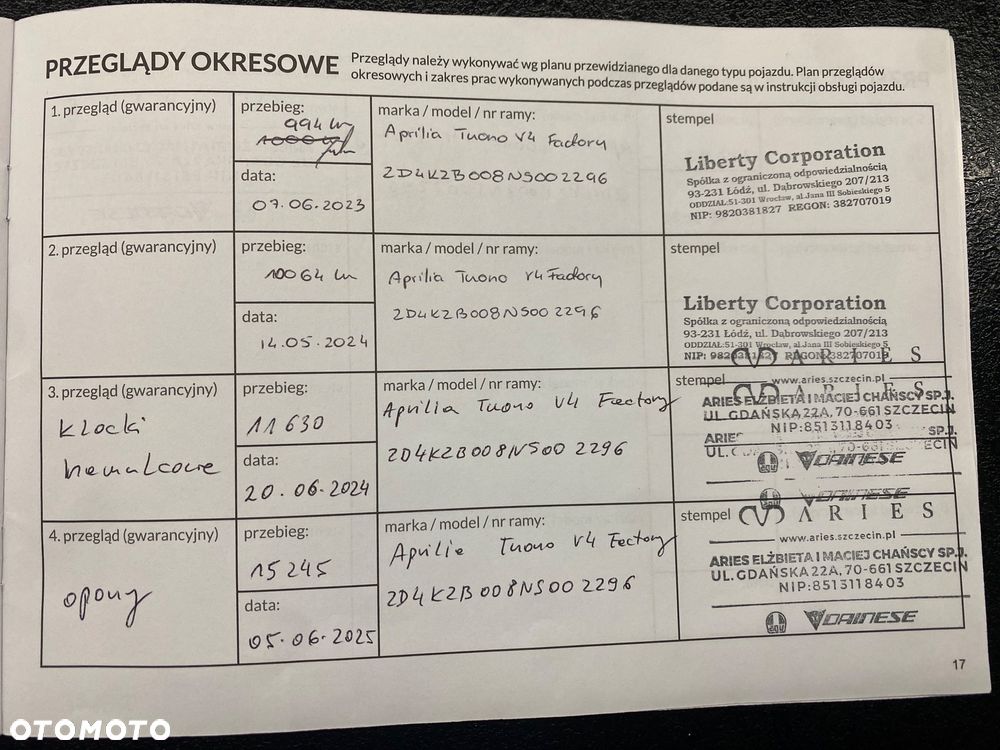 PRZEGLĄDY OKRESOWE
Przeglądy należy wykonywać wg planu przewidzianego dla danego typu pojazdu. Plan przeglądów
okresowych i zakres prac wykonywanych podczas przeglądów podane są w instrukcji obsługi pojazdu.
1. przegląd (gwarancyjny)
przebieg:
994 km
1000
data:
07.06.2023
marka / model / nr ramy:
Aprilia Tuono V4 Factory
ZD4KZB008NS002296
stempel
Liberty Corporation
Spółka z ograniczoną odpowiedzialnością
93-231 Łódź, ul. Dąbrowskiego 207/213
ODDZIAŁ:51-301 Wrocław, al.Jana III Sobieskiego 5
NIP: 9820381827 REGON: 382707019
2. przegląd (gwarancyjny)
przebieg:
10064 km
data:
14.05.2024
marka / model / nr ramy:
Aprilia Tuono V4 Factory
ZD4KZB008NS002296
stempel
Liberty Corporation
Spółka z ograniczoną odpowiedzialnością
93-231 Łódź, ul. Dąbrowskiego 207/213
ODDZIAŁ:51-301 Wrocław, al.Jana III Sobieskiego 5
NIP: 9820381827 REGON: 382707019
3. przegląd (gwarancyjny)
klocki
hamulcowe
przebieg:
11630
data:
20.06.2024
marka / model / nr ramy:
Aprilia Tuono V4 Factory
ZD4KZB008NS002296
stempel
ARIES
www.aries.szczecin.pl
ARIES
ARIES ELŻBIETA I MACIEJ CHAŃSCY SP.J.
UL.GDAŃSKA 22A, 70-661 SZCZECIN
NIP:8513118403
ARIES SP.J.
UL. 70-661 SZCZECIN
AGV DAINESE
DAINESE
4. przegląd (gwarancyjny)
opony
przebieg:
15245
data:
05.06.2025
marka / model / nr ramy:
Aprilia Tuono V4 Factory
ZD4KZB008NS002296
stempel
ARIES
www.aries.szczecin.pl
ARIES ELŻBIETA I MACIEJ CHAŃSCY SP.J.
UL.GDAŃSKA 22A, 70-661 SZCZECIN
NIP:8513118403
AGV DAINESE
17
OTOMOTO